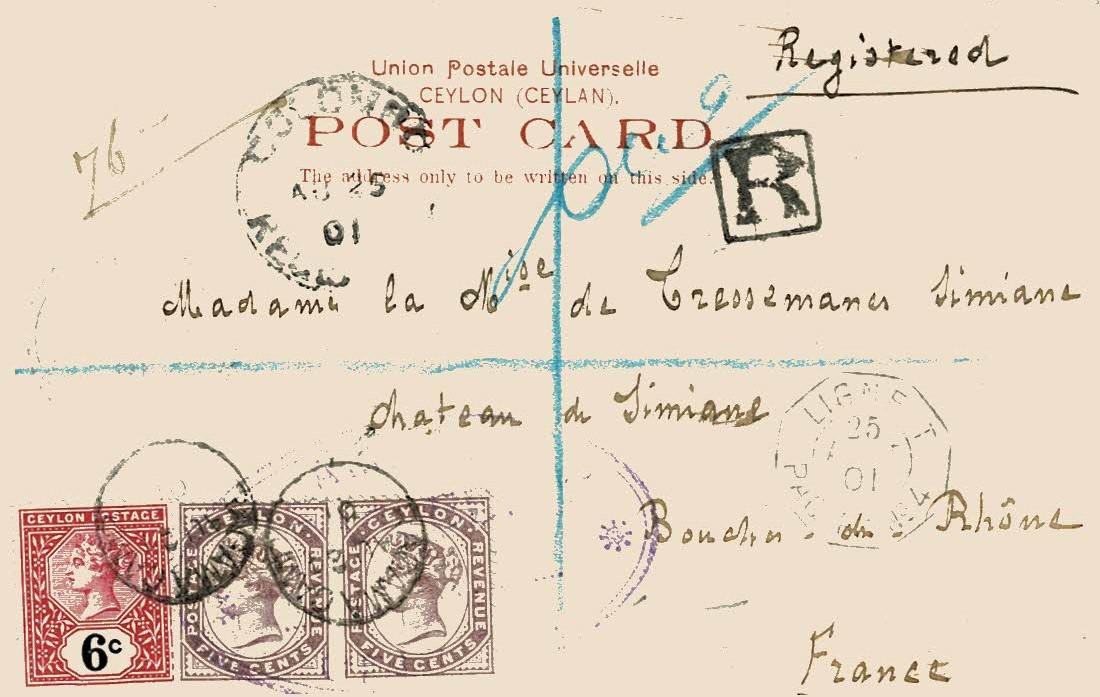 Registered
Union Postale Universelle
CEYLON (CEYLAN).
POST CARD.
The address only to be written on this side.
76
COLOMBO
AU 25
01
R
Madame la Mise de Tressemanes Simiane
Chateau de Simiane
LIGNE T
25
01
Bouches du Rhône
France
CEYLON POSTAGE
6c
CEYLON
POSTAGE
REVENUE
FIVE CENTS
CEYLON
POSTAGE
REVENUE
FIVE CENTS